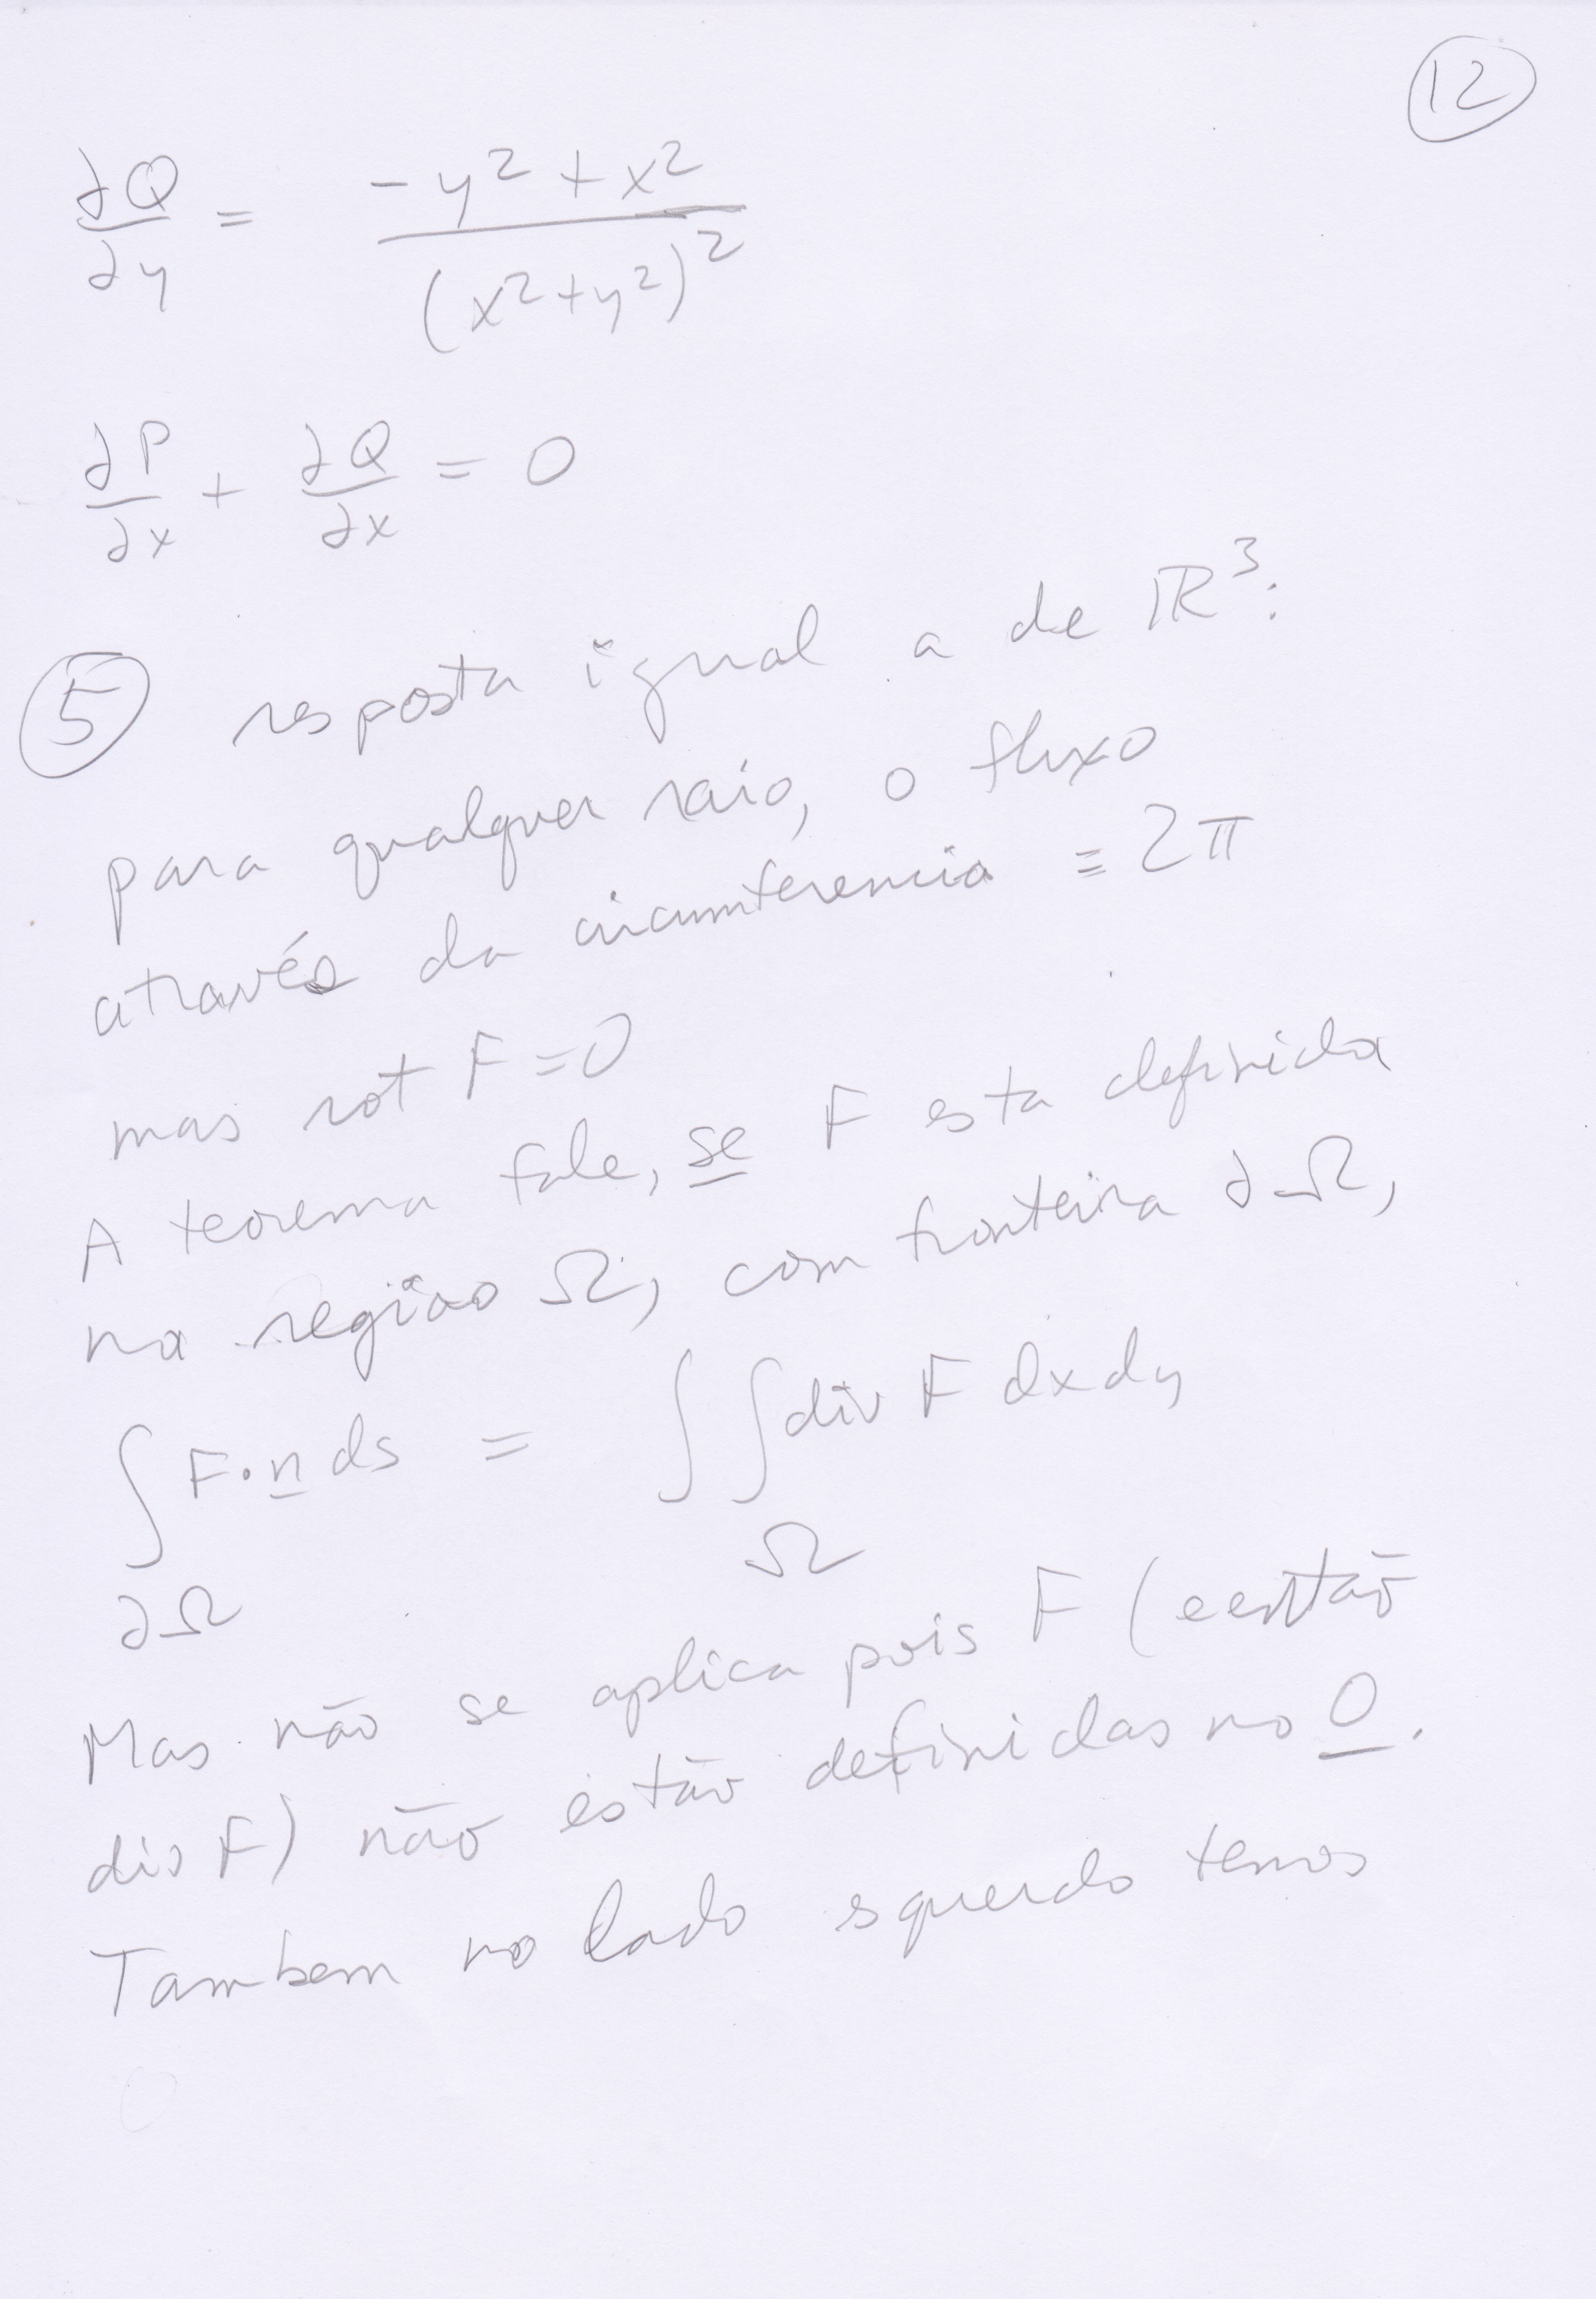 12
∂Q/∂y = (-y² + x²)/(x² + y²)²
∂P/∂x + ∂Q/∂x = 0
5 resposta igual a de ℝ³:
para qualquer raio, o fluxo
através da circumferencia = 2π
mas rot F = 0
A teorema fale, se F esta definida
na região Ω, com fronteira ∂Ω,
∫_∂Ω F·n ds = ∫∫_Ω div F dxdy
Mas não se aplica pois F (e então
div F) não estão definidas no 0.
Tambem no lado squerdo temos